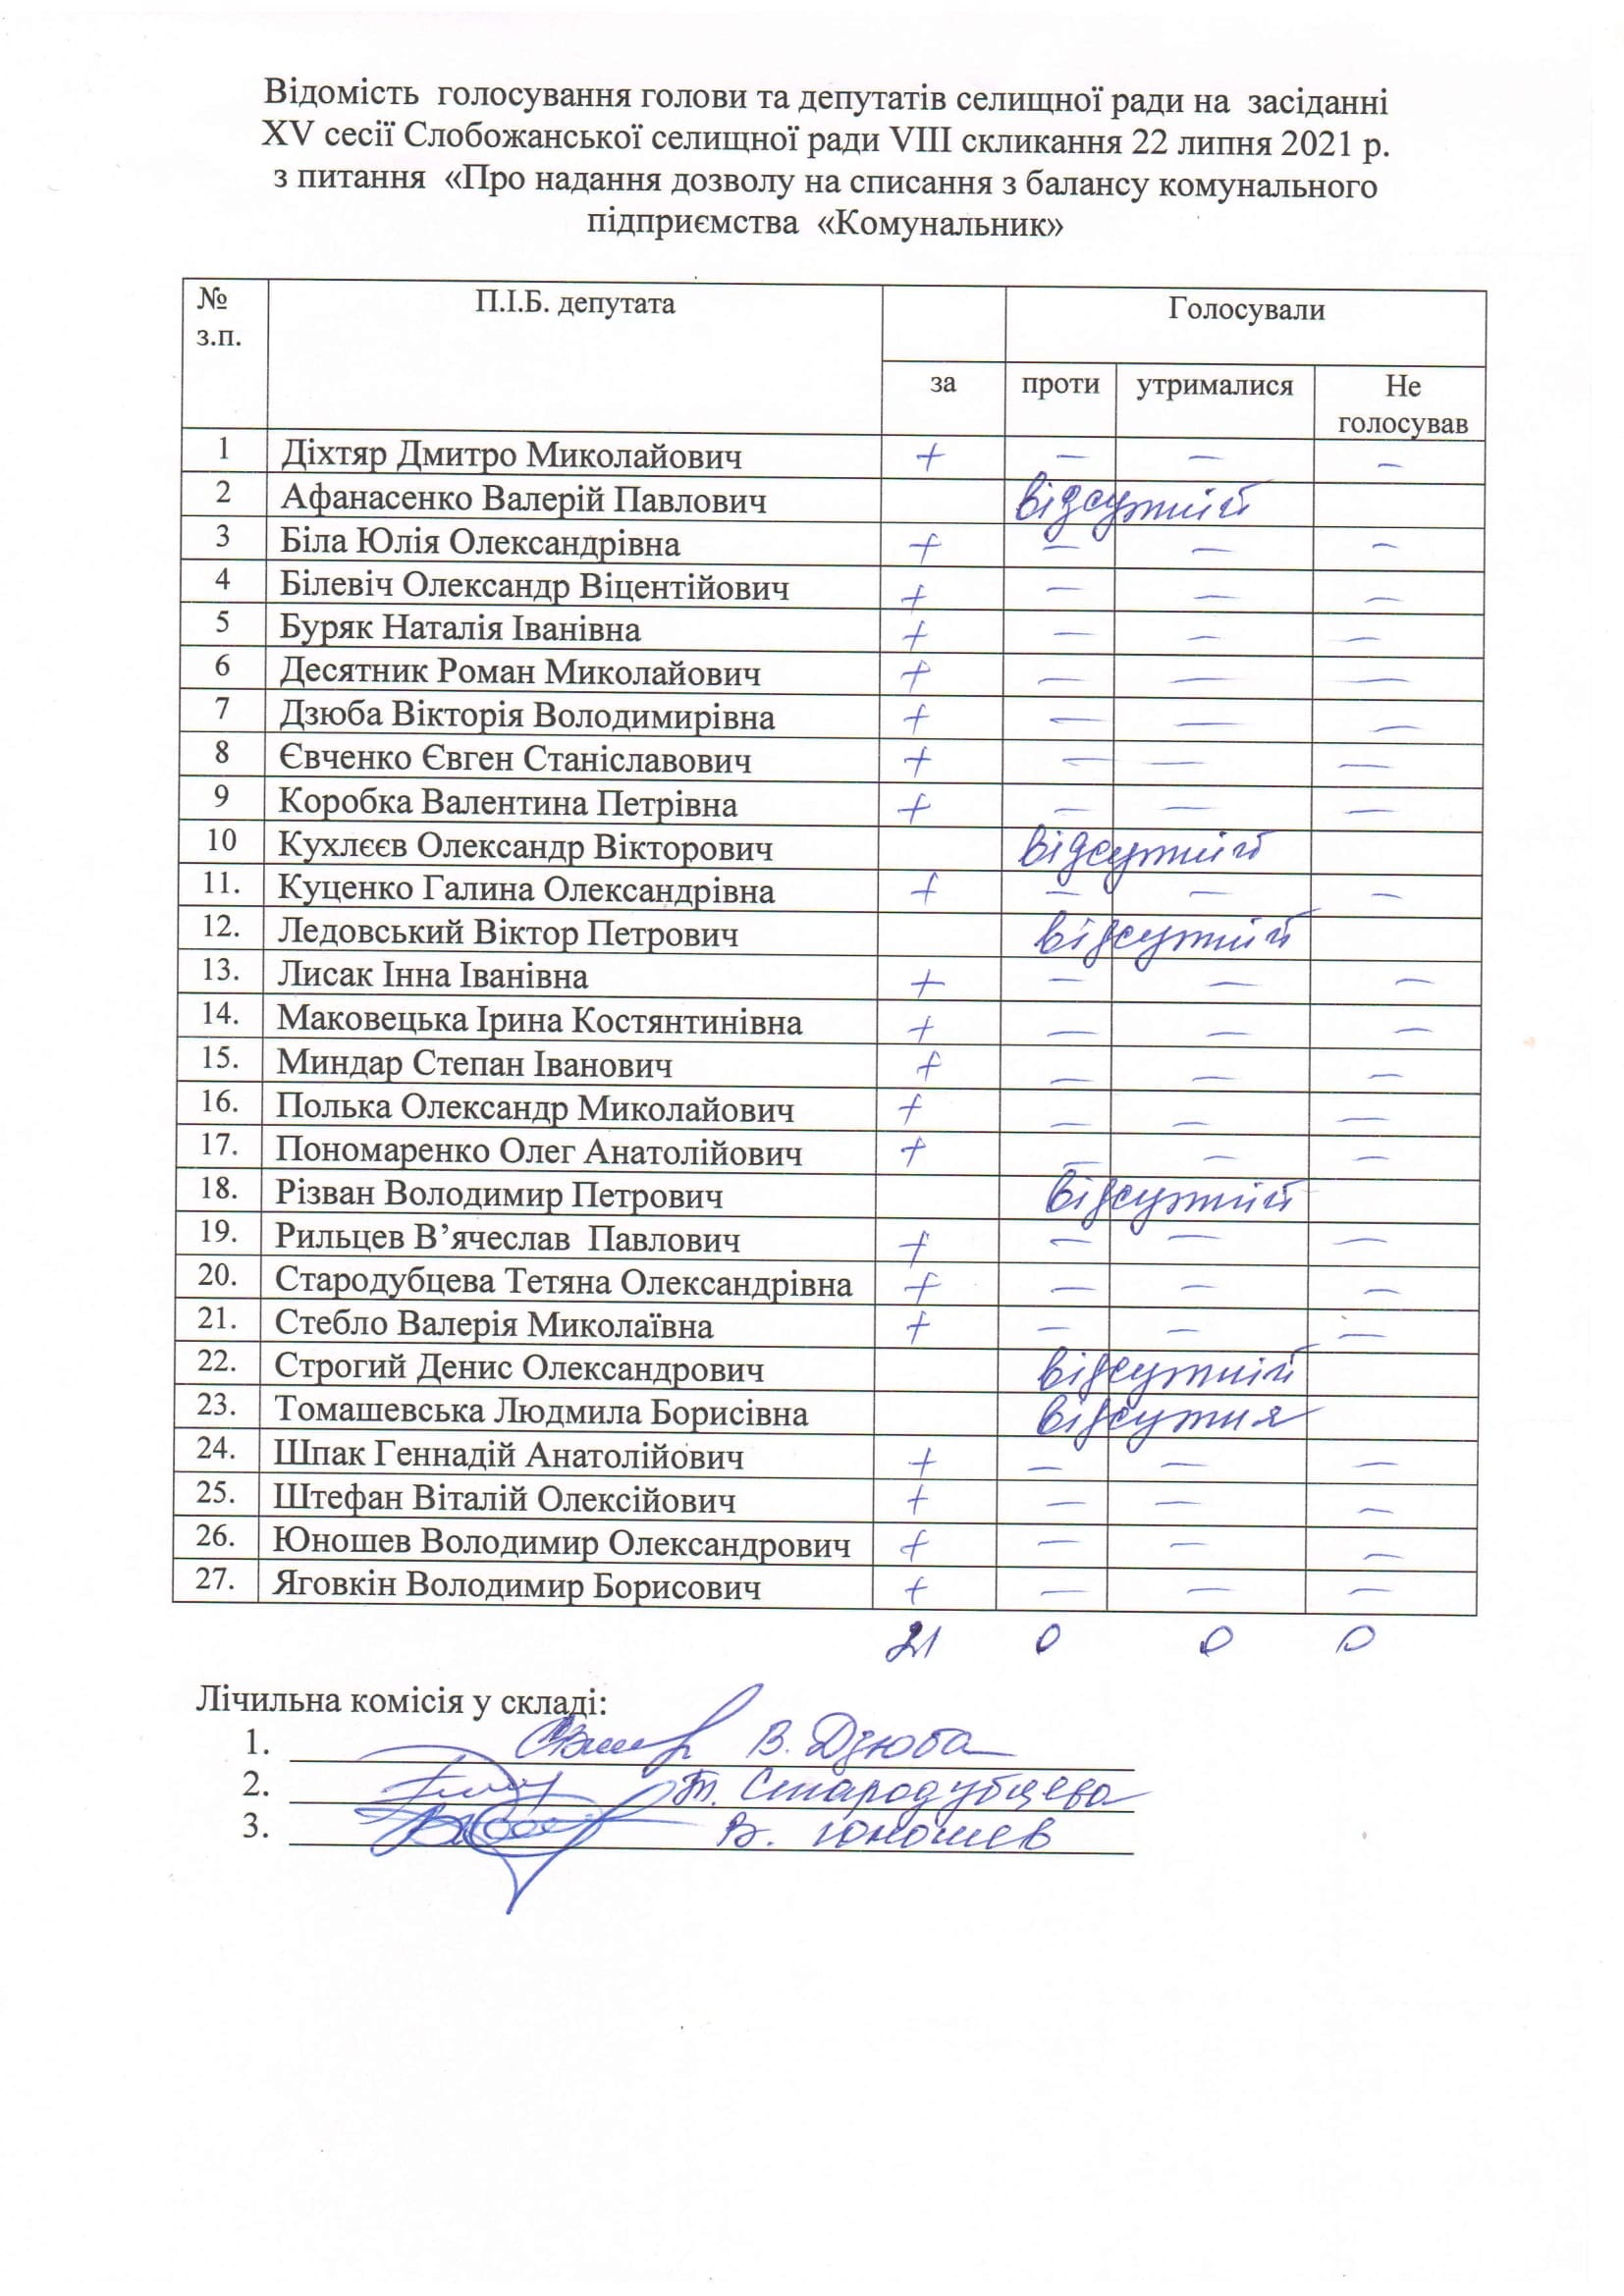 Відомість голосування голови та депутатів селищної ради на засіданні
XV сесії Слобожанської селищної ради VIII скликання 22 липня 2021 р.
з питання «Про надання дозволу на списання з балансу комунального
підприємства «Комунальник»
№ з.п. П.І.Б. депутата Голосували
за проти утрималися Не голосував
1 Діхтяр Дмитро Миколайович + – – –
2 Афанасенко Валерій Павлович відсутній
3 Біла Юлія Олександрівна + – – –
4 Білевіч Олександр Віцентійович + – – –
5 Буряк Наталія Іванівна + – – –
6 Десятник Роман Миколайович + – – –
7 Дзюба Вікторія Володимирівна + – – –
8 Євченко Євген Станіславович + – – –
9 Коробка Валентина Петрівна + – – –
10 Кухлєєв Олександр Вікторович відсутній
11. Куценко Галина Олександрівна + – – –
12. Ледовський Віктор Петрович відсутній
13. Лисак Інна Іванівна + – – –
14. Маковецька Ірина Костянтинівна + – – –
15. Миндар Степан Іванович + – – –
16. Полька Олександр Миколайович + – – –
17. Пономаренко Олег Анатолійович + – – –
18. Різван Володимир Петрович відсутній
19. Рильцев В’ячеслав Павлович + – – –
20. Стародубцева Тетяна Олександрівна + – – –
21. Стебло Валерія Миколаївна + – – –
22. Строгий Денис Олександрович відсутній
23. Томашевська Людмила Борисівна відсутня
24. Шпак Геннадій Анатолійович + – – –
25. Штефан Віталій Олексійович + – – –
26. Юношев Володимир Олександрович + – – –
27. Яговкін Володимир Борисович + – – –
21 0 0 0
Лічильна комісія у складі:
1. В. Дзюба
2. Т. Стародубцева
3. В. Юношев